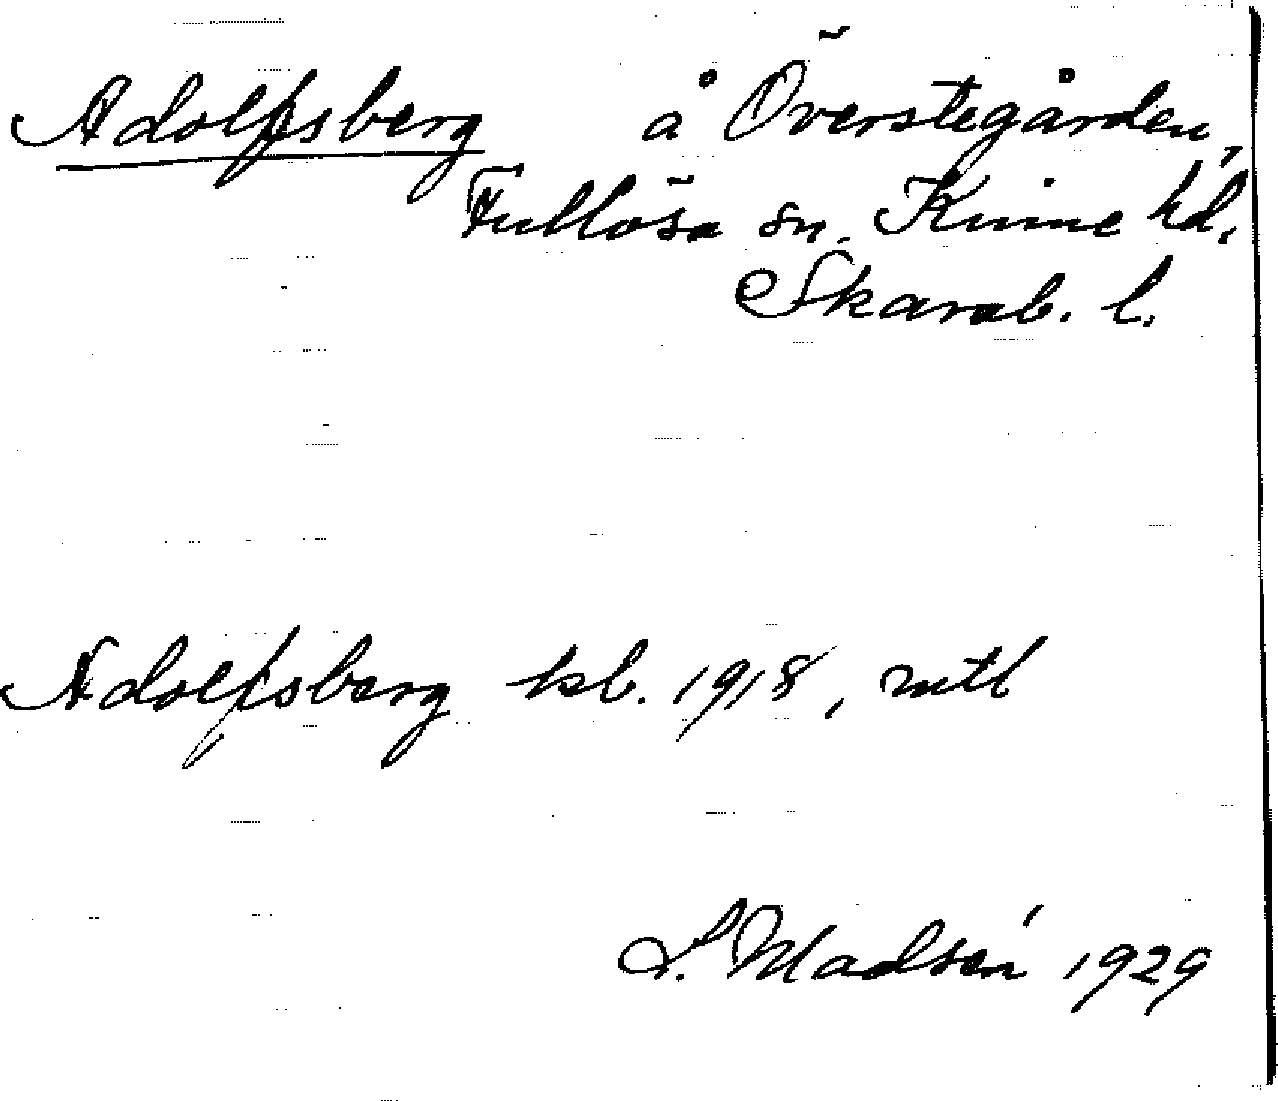 Adolfsberg å Överstegården,
Fullösa sn. Kinne hd.
Skarab. l.
Adolfsberg kb. 1918, mtl
S. Madsén 1929